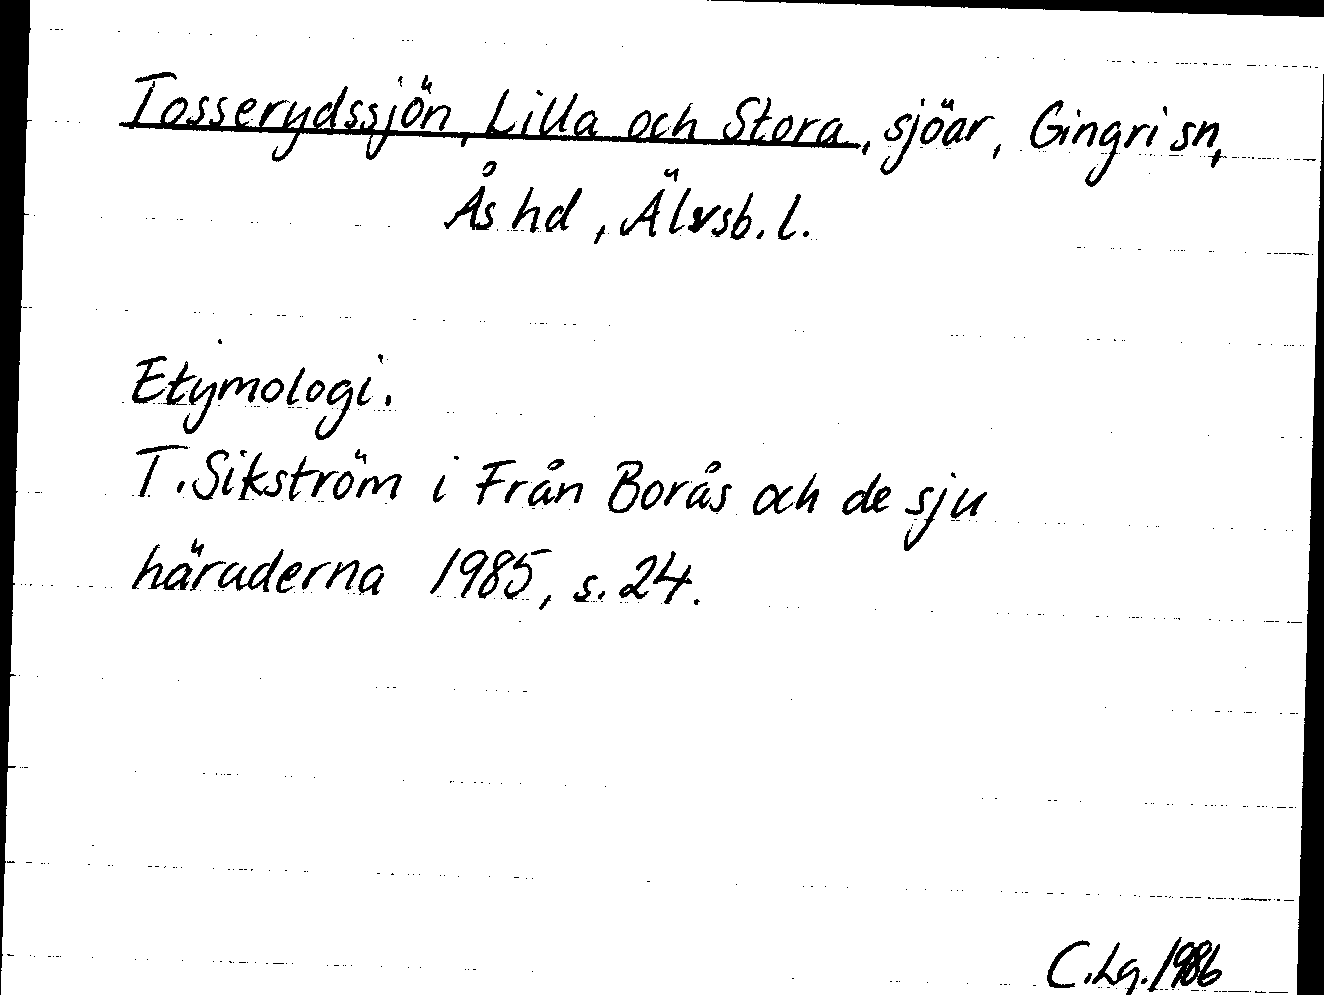 Tosserydssjön, Lilla och Stora, sjöar, Gingri sn,
Ås hd, Älvsb. l.
Etymologi.
T. Sikström i Från Borås och de sju
häraderna 1985, s. 24.
C. Lg. 1986